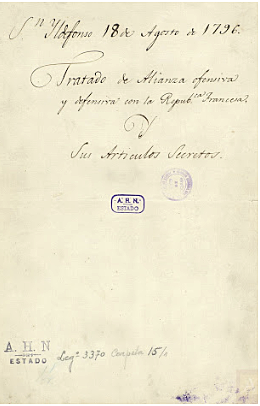 Sn Yldefonso 18 de Agosto de 1796.
Tratado de Alianza ofensiva
y defensiva con la Repub.ca Francesa.
Y
Sus Articulos Secretos.
A.H.N
ESTADO
A. H. N
ESTADO
Legº 3370 Carpeta 15